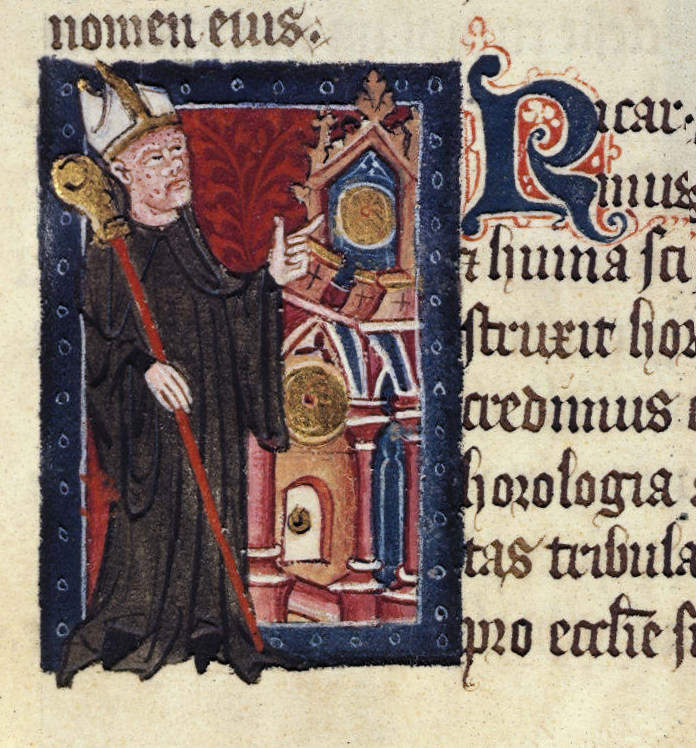 nomen eius.
Ricar
mus
& huma sci
struxit hor
credimus
horologia
tas tribula
pro eccl̄ie si